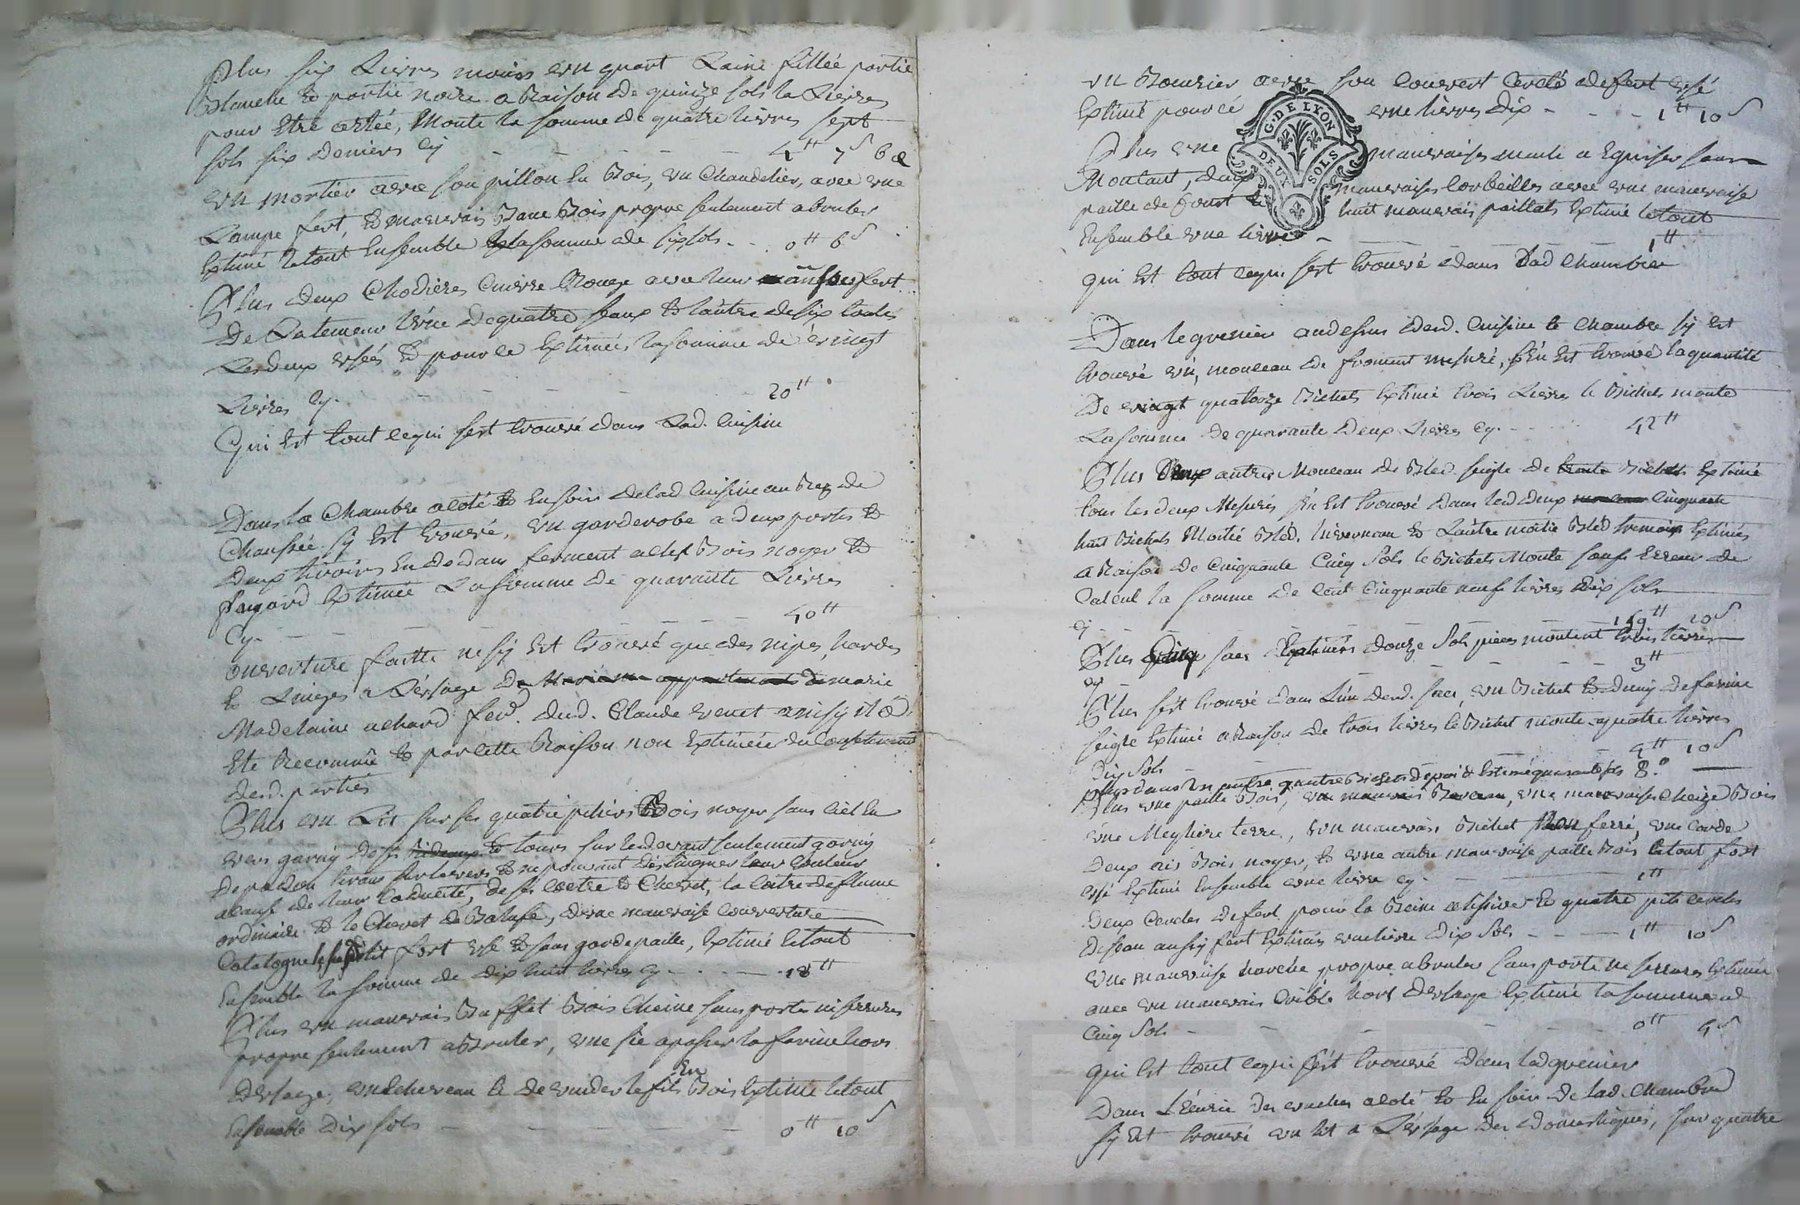 Plus six Livres moins un quart Laine fillée partie
blanche & partie noire a Raison de quinze sols la Livres
pour Etre artée, Monte la somme de quatre livres sept
sols six deniers Cy 4# 7s 6d
un mortier avec son pillon En Bois, un Chandelier, avec une
Lampe fert, & mauvais Banc Bois propre seulement a bruler
Extimé le tout Ensemble la somme de six sols 0# 6s
Plus deux Chodieres Cuivre Rouge avec leur fert
De La teneur l'une de quatre seaux & l'autre de six toutes
Les deux usées & pour ce Extimées la somme de vingt
Livres Cy. 20#
Qui Est tout ce qui s'est trouvé dans Lad. Cuisine
Dans la Chambre a coté & En soir de lad Cuisine au Rez de
Chaussée sy Est trouvé, un garderobe a deux portes &
Deux tiroirs En dedans ferment a clef Bois noyer &
fayard Extimée La somme De quarante Livres
Cy. 40#
ouverture faitte ne sy Est trouvé que des nipes, hardes
& Linges a L'usage De marie
Madelaine achard dud. Claude
Eté Reconnu & par cette Raison non Extimée du Consentement
desd. parties
Plus un Lit sur ses quatre piliers Bois noyer sans Ciel En
vers garny de ses & tours sur le devant seulement garny
De padou & ne pouvant Distinguer leur Couleur
a Cause de leur Caducité, de sa Coetre & Chevet, la Coitre de plume
ordinaire & le Chevet de Balufe, d'une mauvaise Couverture
Catalogne le sud lit fort usé & sans garde paille, Extimé le tout
Ensemble la somme de dix huit livres Cy 18#
Plus un mauvais Buffet Bois Cheine sans portes ni serrures
propre seulement a Bruler, une sie a passer la farine hors
En
D'usage, un de vuider le fil Bois Extimé le tout
Ensemble Dix sols 0# 10s
un Beurier avec son Couvert Cerclé de fert usé
Extimé pour ce une livres Dix 1# 10s
G. DE LYON
DEUX SOLS
Plus une mauvaises meule a Eguiser sans
Montant, deux mauvaises Corbeilles avec une mauvaise
paille de fourt & huit mauvais paillats Extimé le tout
Ensemble une livre 1#
qui Est tout ce qui sest trouvé dans Lad Chambre
Dans le grenier au dessus desd. Cuisine & Chambre sy Est
trouvé un, monceau de froment mesuré, s'En Est trouvé la quantité
De vingt quatorze Bichets Extimé trois Livres le Bichet monte
La somme de quarante Deux Livres Cy. 42#
Plus Deux autres Monceau de Bled seigle de Extimé
tous les deux Mesurés s'En Est trouvé dans lesd deux Cinquante
huit Bichets Moitié Bled, hivernau & L'autre moitié Bled tremois Extimés
a Raison de Cinquante Cinq Sols le Bichet Monte sauf Erreur de
Calcul la somme de Cent Cinquante neuf livres Dix sols
Cj 159# 10s
Plus sacs Extimés douze Sols piece montent trois livres
cy 3#
Plus s'est trouvé dans L'un desd. sacs, un Bichet & Demy de farine
seigle Extimé a Raison de trois livres le Bichet monte quatre livres
Dix Sols 4# 10s
plus dans un autre quatre Bichets Estimé quarante sols 8.
Plus une paille Bois, un mauvais , une mauvaise Cheize Bois
une terre, un mauvais Bichet ferré, une Corde
Deux ais Bois noyer, & une autre mauvaise paille Bois le tout fort
usé Extimé Ensemble une livre Cy. 1#
Deux Cercles De fert, pour la Beine a lessive & quatre petits Cercles
De seau aussy fert Extimés une livre Dix Sols 1# 10s
une mauvaise harche propre a bruler sans porte ne serrures Extimée
avec un mauvais Crible hors D'usage Extimé la somme de
Cinq Sols 0# 5s
qui Est tout ce qui sest trouvé Dans lad grenier
Dans L'Ecurie des vaches a coté & En soir de lad. Chambre
sy Est trouvé un lit a L'usage Des Domestiques, sur quatre